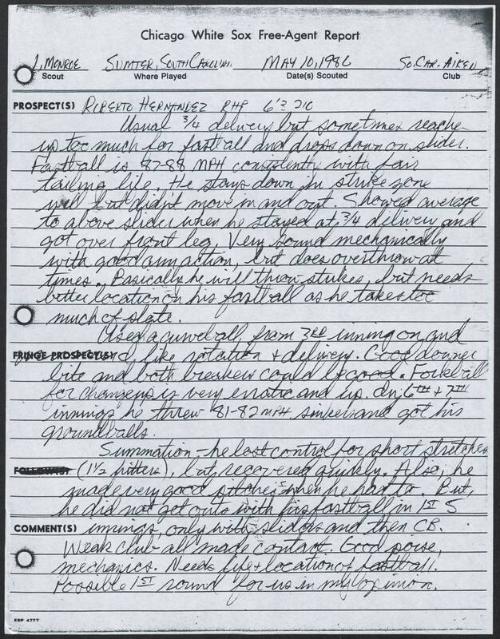 Chicago White Sox Free-Agent Report
L. Monroe Sumter, South Carolina May 10, 1986 So. Car. Aiken
Scout Where Played Date(s) Scouted Club
PROSPECT(S) Roberto Hernandez RHP 6'2 210
Usual 3/4 delivery but sometimes reaches
up too much for fastball and drops down on slider.
Fastball is 87-88 MPH consistently with fair
tailing life. He stays down in strike zone
well but didn't move in and out. Showed average
to above slider when he stayed at 3/4 delivery and
got over front leg. Very sound mechanically
with good arm action, but does overthrow at
times. Basically he will throw strikes, but needs
better location on his fastball as he takes too
much of plate.
Used a curveball from 3rd inning on and
FRINGE PROSPECT(S) like rotation + delivery. Good downer
bite and both breakers could be good. Forkball
for changeup is very erratic and up. In 6th + 7th
innings he threw 81-82 MPH sinkers and got his
groundballs.
Summation - he lost control for short stretches
FOLLOW(S) (1 1/2 hitters), but recovered quickly. Also, he
made very good pitches when he had to. But,
he did not get outs with his fastball in 1st 5
COMMENT(S) innings, only with sliders and then CB.
Weak club - all made contact. Good poise,
mechanics. Needs life + location of fastball.
Possible 1st round for us in my opinion.